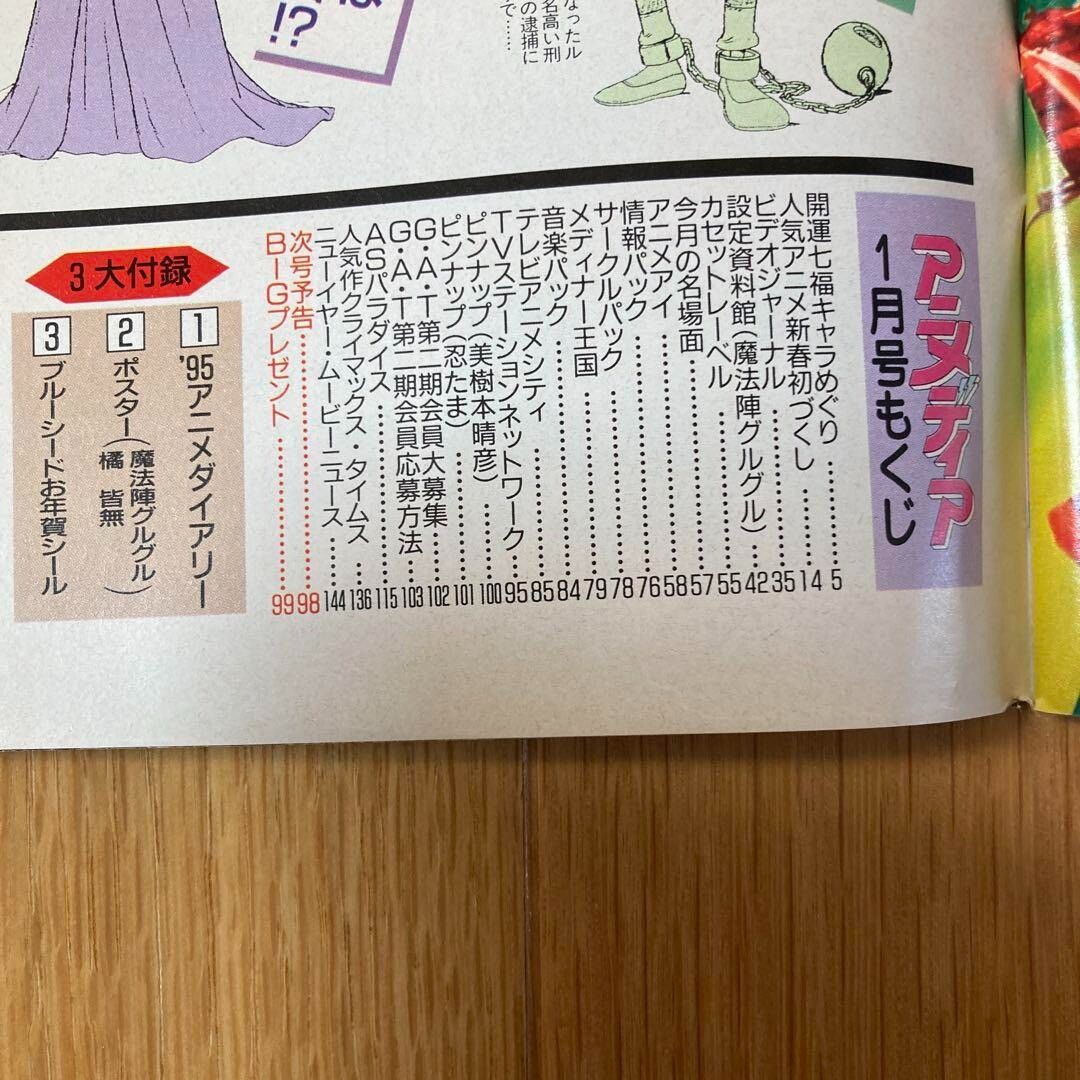 なったル
名高い刑
の逮捕に
で……
は
!?
アニメディア
1月号もくじ
開運七福キャラめぐり……5
人気アニメ新春初づくし……14
ビデオジャーナル……35
設定資料館(魔法陣グルグル)……42
カセットレーベル……55
今月の名場面……57
アニメアイ……58
情報パック……76
サークルパック……78
メディナー王国……79
音楽パック……84
テレビアニメシティ……85
TVステーションネットワーク……95
ピンナップ(美樹本晴彦)……100
ピンナップ(忍たま)……101
G・A・T第二期会員大募集……102
G・A・T第二期会員応募方法……103
ASパラダイス……115
人気作クライマックス・タイムス……136
ニューイヤー・ムービーニュース……144
次号予告……98
BIGプレゼント……99
3大付録
1 '95アニメダイアリー
2 ポスター(魔法陣グルグル)
橘 皆無
3 ブルーシードお年賀シール